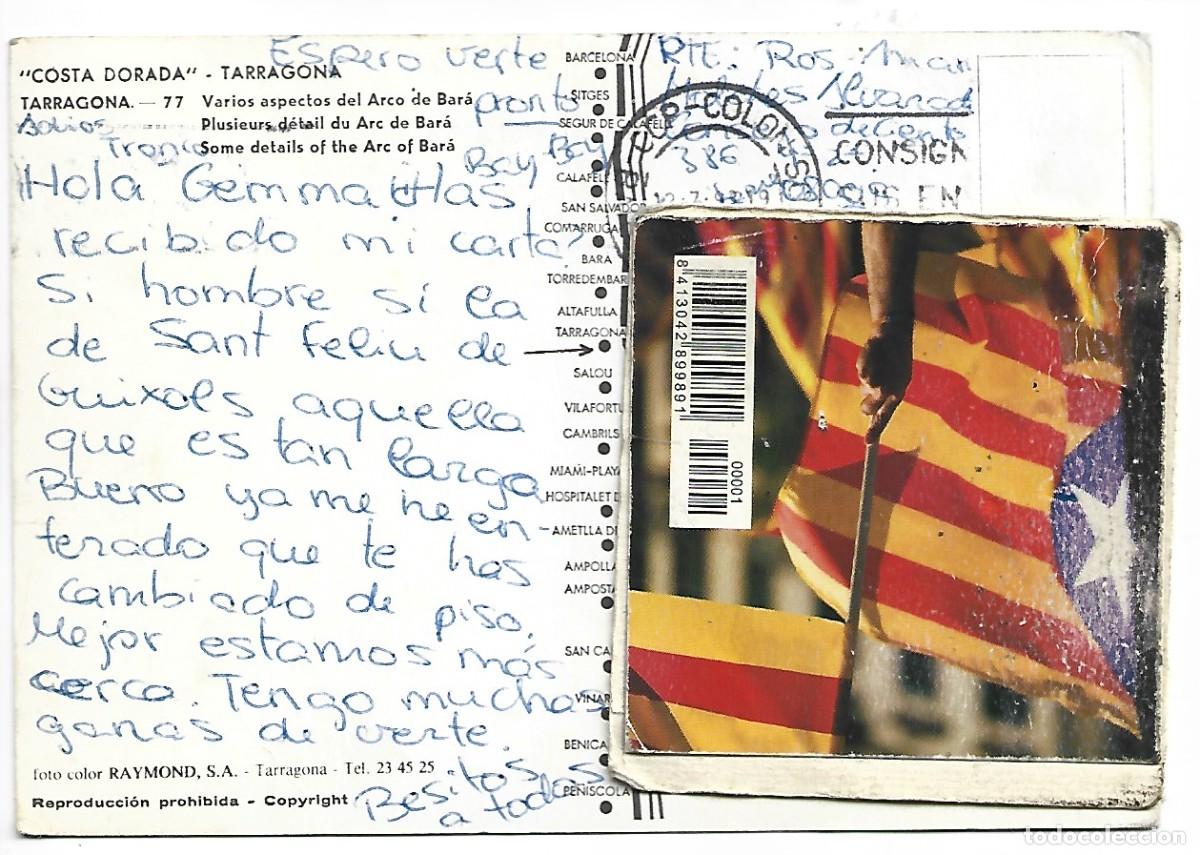 "COSTA DORADA" - TARRAGONA
TARRAGONA. — 77 Varios aspectos del Arco de Bará
Plusieurs détail du Arc de Bará
Some details of the Arc of Bará
Hola Gemma ¿Has
recibido mi carta?
Si hombre sí la
de Sant Feliu de
Guixols aquella
que es tan larga
Bueno ya me he en-
terado que te has
cambiado de piso.
Mejor estamos más
cerca. Tengo muchas
ganas de verte.
Besitos
a todos
Espero verte
pronto
Bay Bay
Adios
Tronca
foto color RAYMOND, S.A. - Tarragona - Tel. 23 45 25
Reproducción prohibida - Copyright
BARCELONA
SITGES
SEGUR DE CALAFELL
CALAFELL
SAN SALVADOR
COMARRUGA
BARA
TORREDEMBAR
ALTAFULLA
TARRAGONA
SALOU
VILAFORTU
CAMBRILS
MIAMI-PLAYA
HOSPITALET D
AMETLLA DE
AMPOLLA
AMPOSTA
SAN CA
VINAR
BENICA
PEÑISCOLA
RTE: Ros
Alvarad
386
CONSIGN
EN
8413042899891
00001
todocoleccion